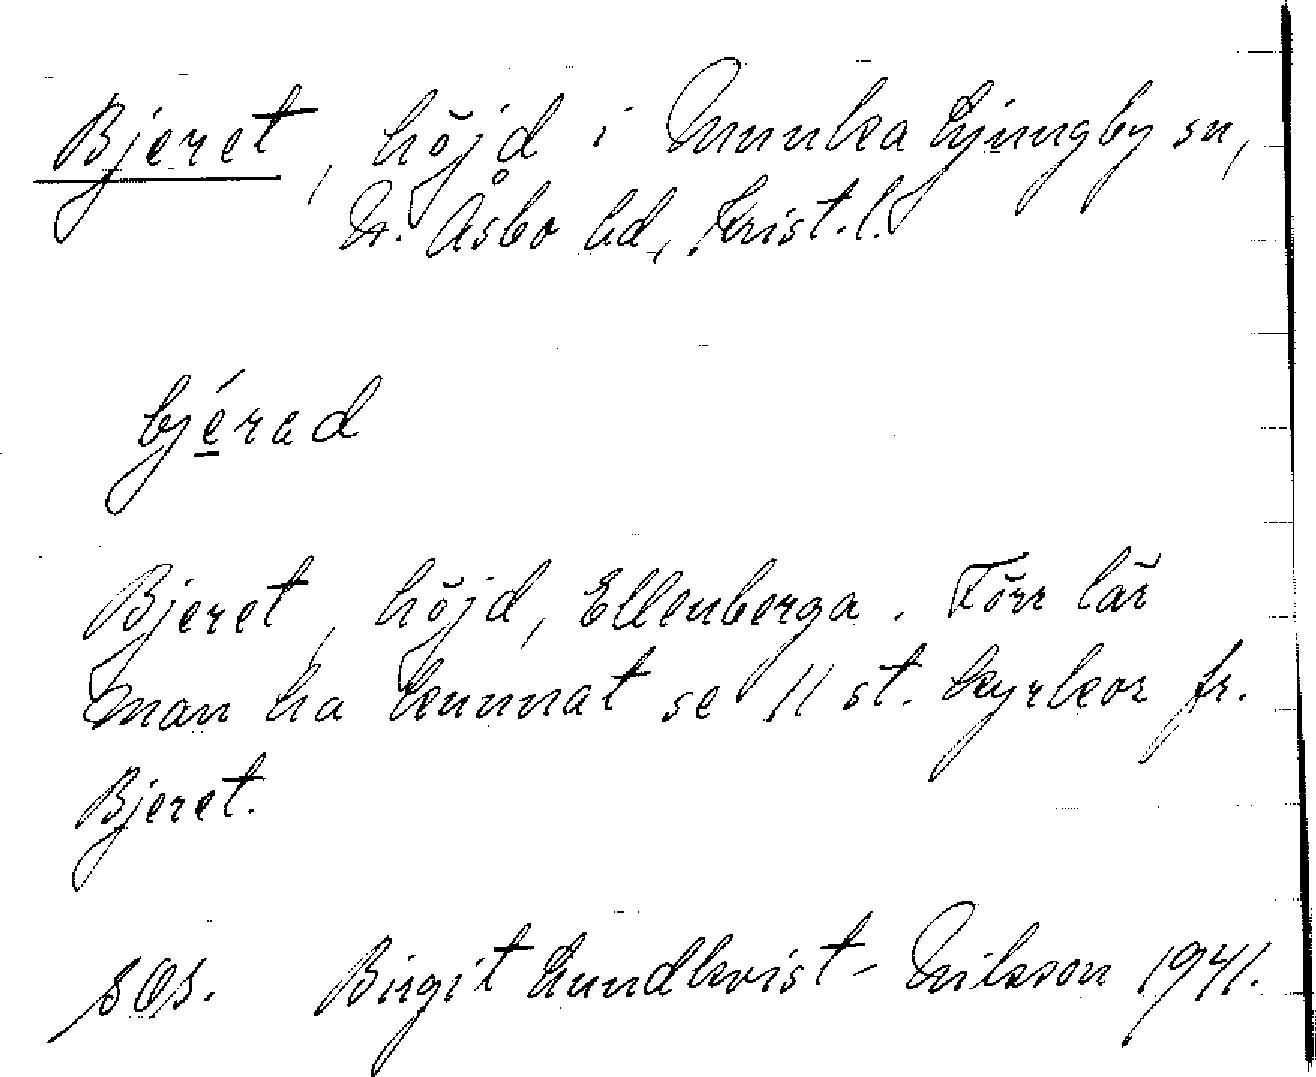 Bjeret, höjd i Munka Ljungby sn,
N. Åsbo hd, Krist. l.
bjérad
Bjeret, höjd, Ellenberga. Förr lär
man ha kunnat se 11 st. kyrkor fr.
Bjeret.
Birgit Lundkvist-Nilsson 1941.